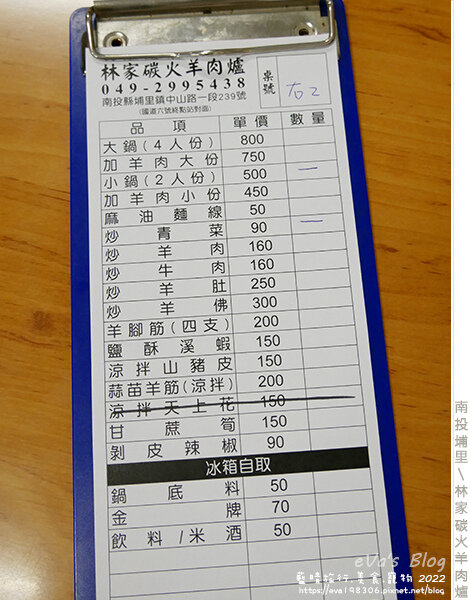 林家碳火羊肉爐
049-2995438
南投縣埔里鎮中山路一段239號
(國道六號終點站對面)
桌號 右2
品項 單價 數量
大鍋(4人份) 800
加羊肉大份 750
小鍋(2人份) 500 一
加羊肉小份 450
麻油麵線 50
炒青菜 90 一
炒羊肉 160
炒牛肉 160
炒羊肚 250
炒羊佛 300
羊腳筋(四支) 200
鹽酥溪蝦 150
涼拌山豬皮 150
蒜苗羊筋(涼拌) 200
涼拌天上花 150
甘蔗筍 150
剝皮辣椒 90
冰箱自取
鍋底料 50
金牌 70
飲料/米酒 50
南投埔里\林家碳火羊肉爐
eVa's Blog
藍睛旅行.美食寵物 2022
https://eva198306.pixnet.net/blog